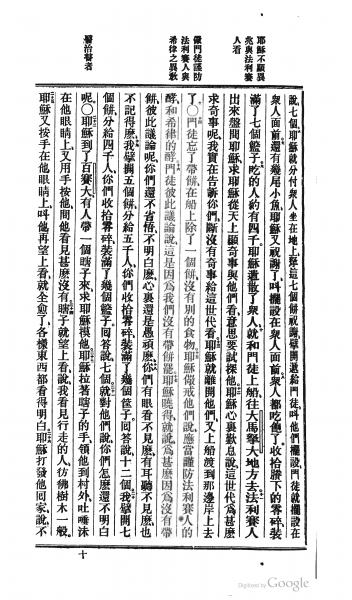 耶穌不顯異
兆與法利賽
人看
儆門徒謹防
法利賽人與
希律之異敎
醫治瞽者
說、七個、耶穌就分付衆人坐在地上、拏這七個餅祝謝擘開遞給門徒、叫他們擺設、門徒就擺設在
衆人面前、還有幾尾小魚、耶穌又祝謝了、叫擺設在衆人面前、衆人都吃飽了、收拾賸下的零碎、裝
滿了七個籃子、吃的人約有四千、耶穌遣散了衆人、就和門徒上船、往大馬拏大地方去、法利賽人
出來盤問耶穌、求耶穌從天上顯奇事與他們看、意思要試探他、耶穌心裏歎息說、這世代爲甚麽
求奇事呢、我實在告訴你們、斷沒有奇事給這世代看、耶穌就離開他們、又上船渡到那邊岸上去
了○門徒忘了帶餅、在船上除了一個餅、沒有別的食物、耶穌儆戒他們說、應當謹防法利賽人的
酵、和希律的酵、門徒彼此議論說、這是因爲我們沒有帶餅罷、耶穌曉得就說、爲甚麽因爲沒有帶
餅彼此議論呢、你們還不省悟、不明白麽、心裏還是愚頑麽、你們有眼看不見麽、有耳聽不見麽、也
不記得麽、我擘開五個餅分給五千人、你們收拾零碎裝滿了幾個筐子、回答說、十二個、我擘開七
個餅分給四千人、你們收拾零碎裝滿了幾個籃子、回答說七個、就對他們說、你們怎麽還不明白
呢○耶穌到了百賽大、有人帶一個瞎子來、求耶穌摸他、耶穌拉著瞎子的手、領他到村外、吐唾沫
在他眼睛上、又用手按他、問他看見甚麽沒有、瞎子就望上看、說、我看見行走的人、彷彿樹木一般、
耶穌又按手在他眼睛上、叫他再望上看、就全愈了、各樣東西都看得明白、耶穌打發他回家、說、不
十
Digitized by Google